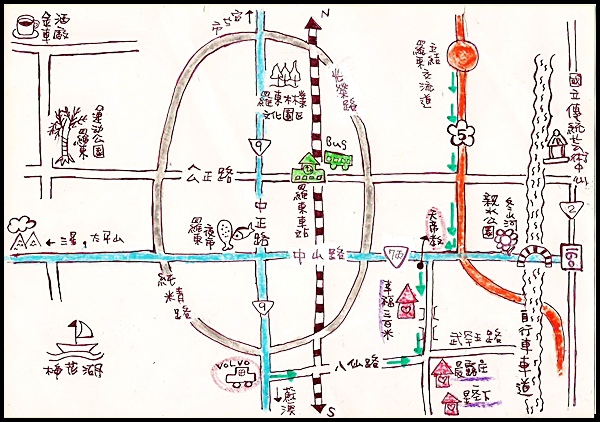 金車
酒廠
宜蘭市
N
五結
羅東交流道
光榮路
羅東林業
文化園區
國立傳統藝術中心
運動公園
羅東
9
Bus
5
公正路
羅東車站
2
中正路
羅東
夜市
冬山河
親水公園
天帝教
三星,太平山
中山路
7丙
純精路
幸福三百米
9
武罕五路
自行車車道
梅花湖
VOLVO
八仙路
晨露莊
星空下
蘇澳
S